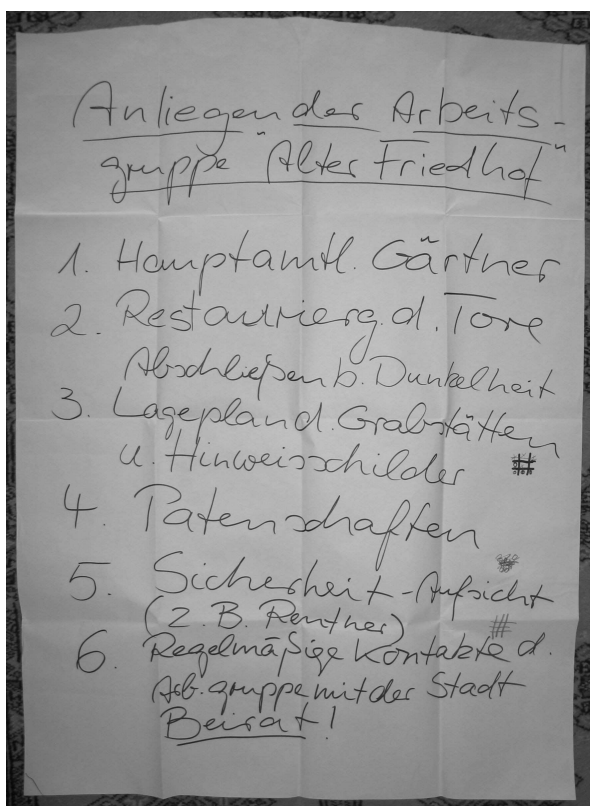 Anliegen der Arbeits-
gruppe "Alter Friedhof"
1. Hauptamtl. Gärtner
2. Restaurierg. d. Tore
Abschließen b. Dunkelheit
3. Lageplan d. Grabstätten
u. Hinweisschilder
4. Patenschaften
5. Sicherheit-Aufsicht
(z. B. Rentner)
6. Regelmäßige Kontakte d.
Arb.gruppe mit der Stadt
Beirat!